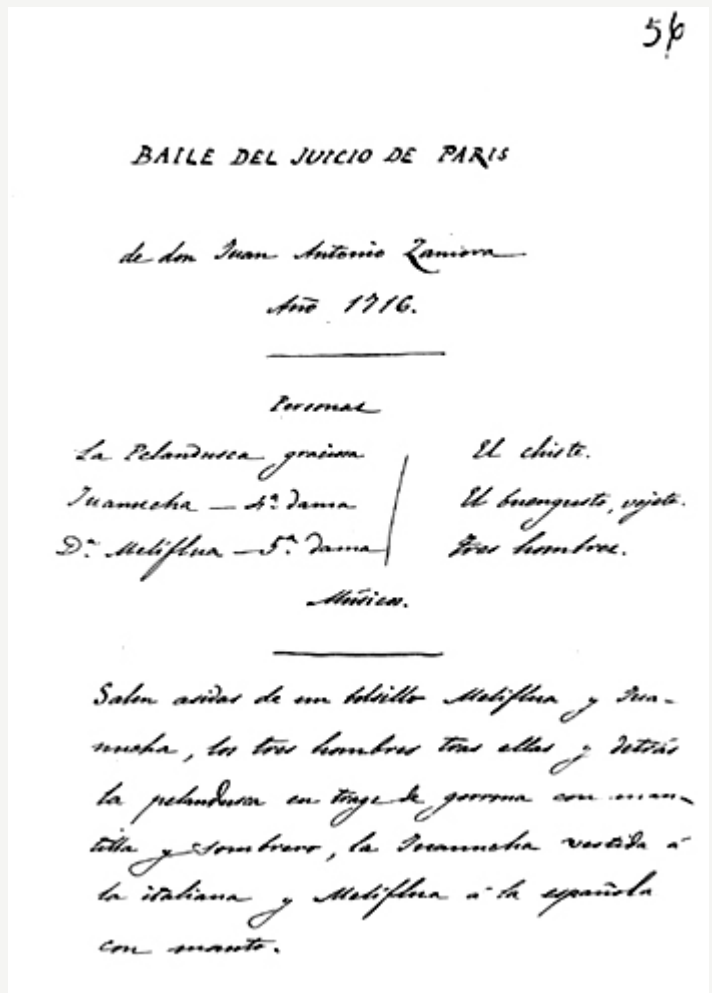 56
BAILE DEL JUICIO DE PARIS
de don Juan Antonio Zamora
Año 1716.
Personas
La Pelandusca graciosa
Juanucha — 4ª dama
Dª Meliflua — 5ª dama
El chiste.
El buengusto, vejete.
tres hombres.
Música.
Salen asidas de un bolsillo Meliflua y Jua-
nucha, los tres hombres tras ellas y detrás
la pelandusca en trage de gorrona con man-
tilla y sombrero, la Juanucha vestida á
la italiana y Meliflua á la española
con manto.